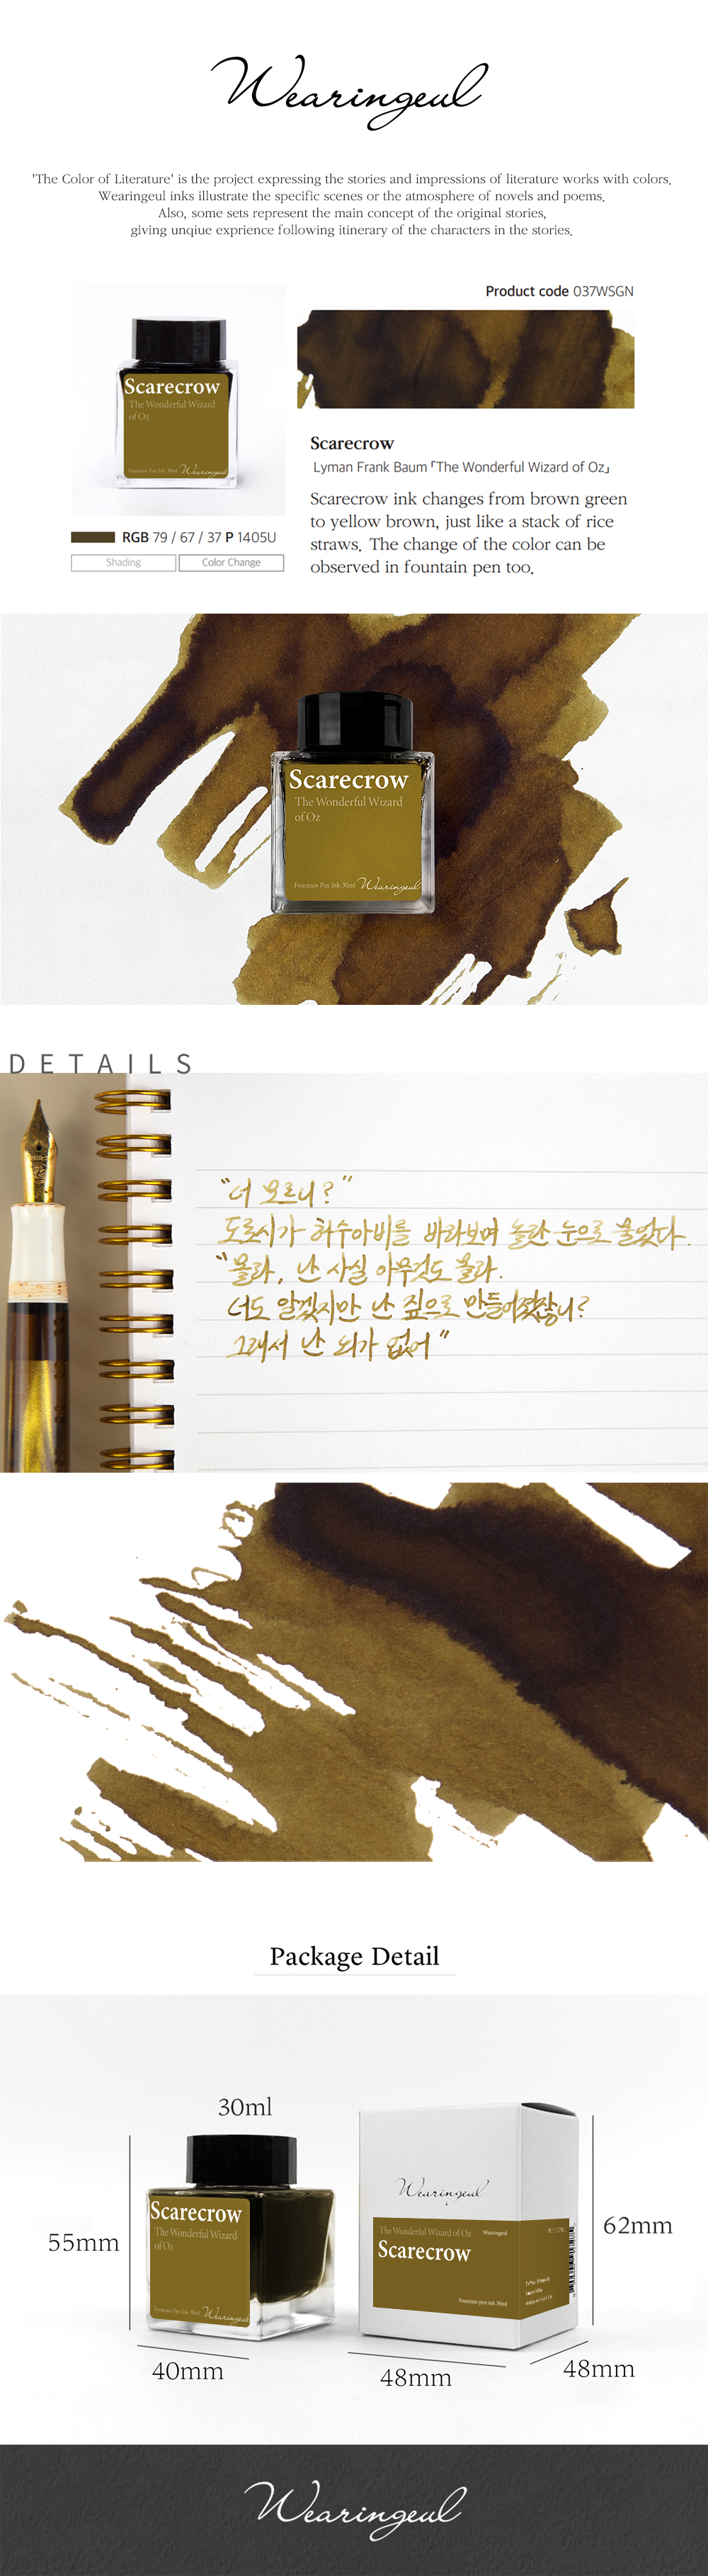 Wearingeul
'The Color of Literature' is the project expressing the stories and impressions of literature works with colors.
Wearingeul inks illustrate the specific scenes or the atmosphere of novels and poems.
Also, some sets represent the main concept of the original stories,
giving unqiue exprience following itinerary of the characters in the stories.
Product code 037WSGN
Scarecrow
The Wonderful Wizard
of Oz
Fountain Pen Ink 30ml Wearingeul
RGB 79 / 67 / 37 P 1405U
Shading
Color Change
Scarecrow
Lyman Frank Baum「The Wonderful Wizard of Oz」
Scarecrow ink changes from brown green
to yellow brown, just like a stack of rice
straws. The change of the color can be
observed in fountain pen too.
Scarecrow
The Wonderful Wizard
of Oz
Fountain Pen Ink 30ml Wearingeul
DETAILS
"너 모르니?"
도로시가 허수아비를 바라보며 놀란 눈으로 물었다.
"몰라, 난 사실 아무것도 몰라.
너도 알겠지만 난 짚으로 만들어졌잖니?
그래서 난 뇌가 없어"
Package Detail
30ml
55mm
40mm
Scarecrow
The Wonderful Wizard
of Oz
Fountain Pen Ink 30ml Wearingeul
Wearingeul
The Wonderful Wizard of Oz Wearingeul
Scarecrow
Fountain pen ink 30ml
62mm
48mm
48mm
Wearingeul